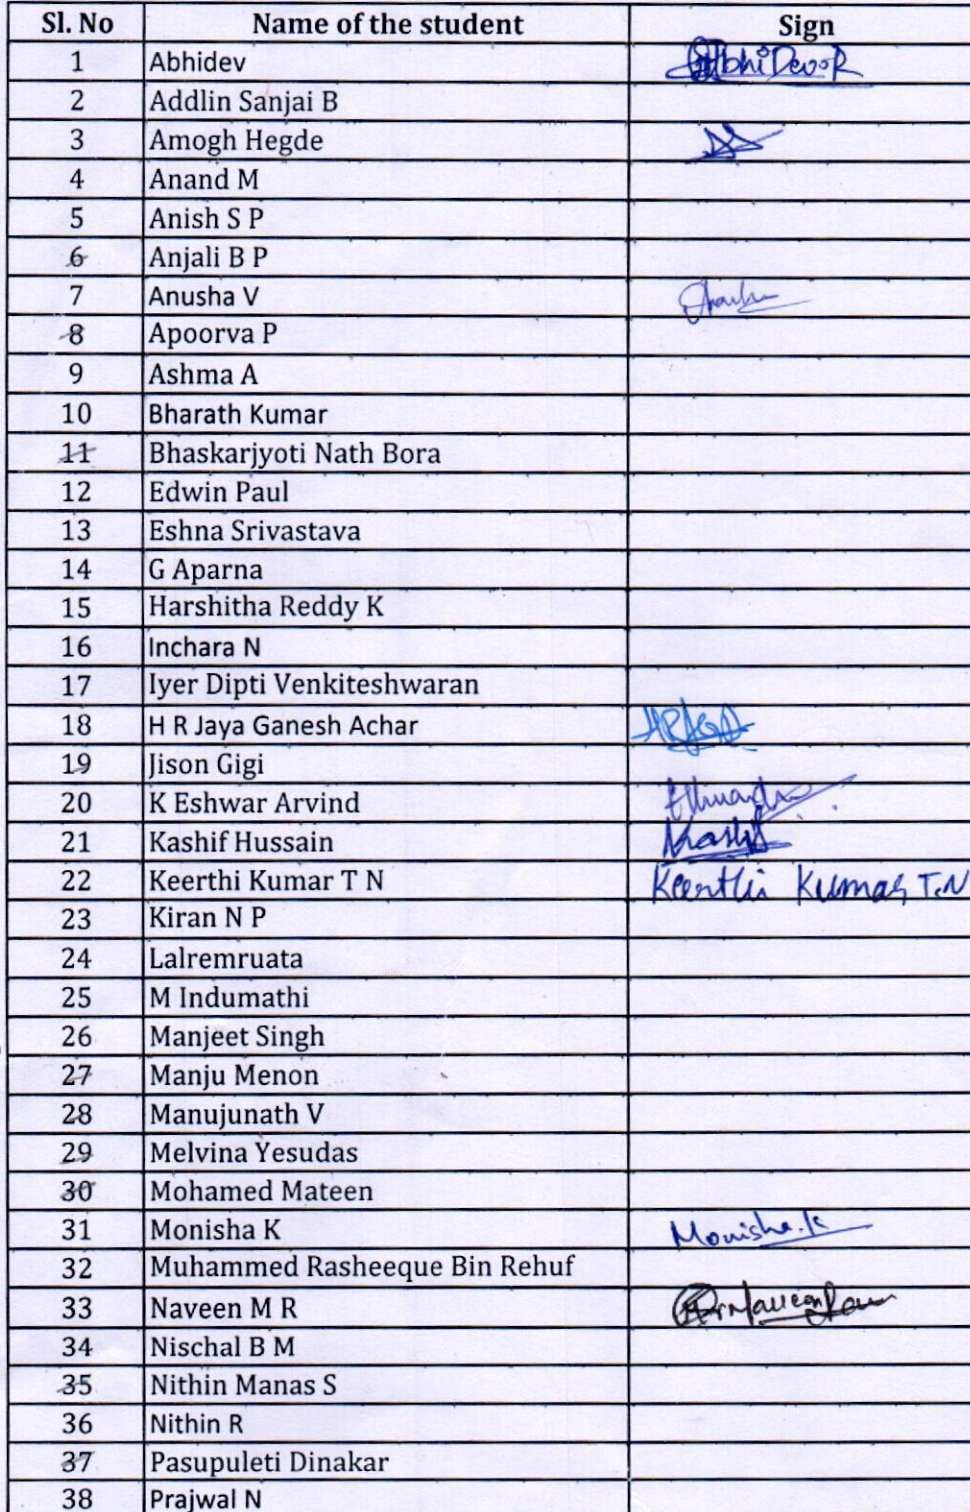 Sl. No Name of the student Sign
1 Abhidev AbhiDev.R
2 Addlin Sanjai B
3 Amogh Hegde
4 Anand M
5 Anish S P
6 Anjali B P
7 Anusha V
8 Apoorva P
9 Ashma A
10 Bharath Kumar
11 Bhaskarjyoti Nath Bora
12 Edwin Paul
13 Eshna Srivastava
14 G Aparna
15 Harshitha Reddy K
16 Inchara N
17 Iyer Dipti Venkiteshwaran
18 H R Jaya Ganesh Achar
19 Jison Gigi
20 K Eshwar Arvind
21 Kashif Hussain Kashif
22 Keerthi Kumar T N Keerthi Kumar T.N
23 Kiran N P
24 Lalremruata
25 M Indumathi
26 Manjeet Singh
27 Manju Menon
28 Manujunath V
29 Melvina Yesudas
30 Mohamed Mateen
31 Monisha K Monisha.K
32 Muhammed Rasheeque Bin Rehuf
33 Naveen M R
34 Nischal B M
35 Nithin Manas S
36 Nithin R
37 Pasupuleti Dinakar
38 Prajwal N